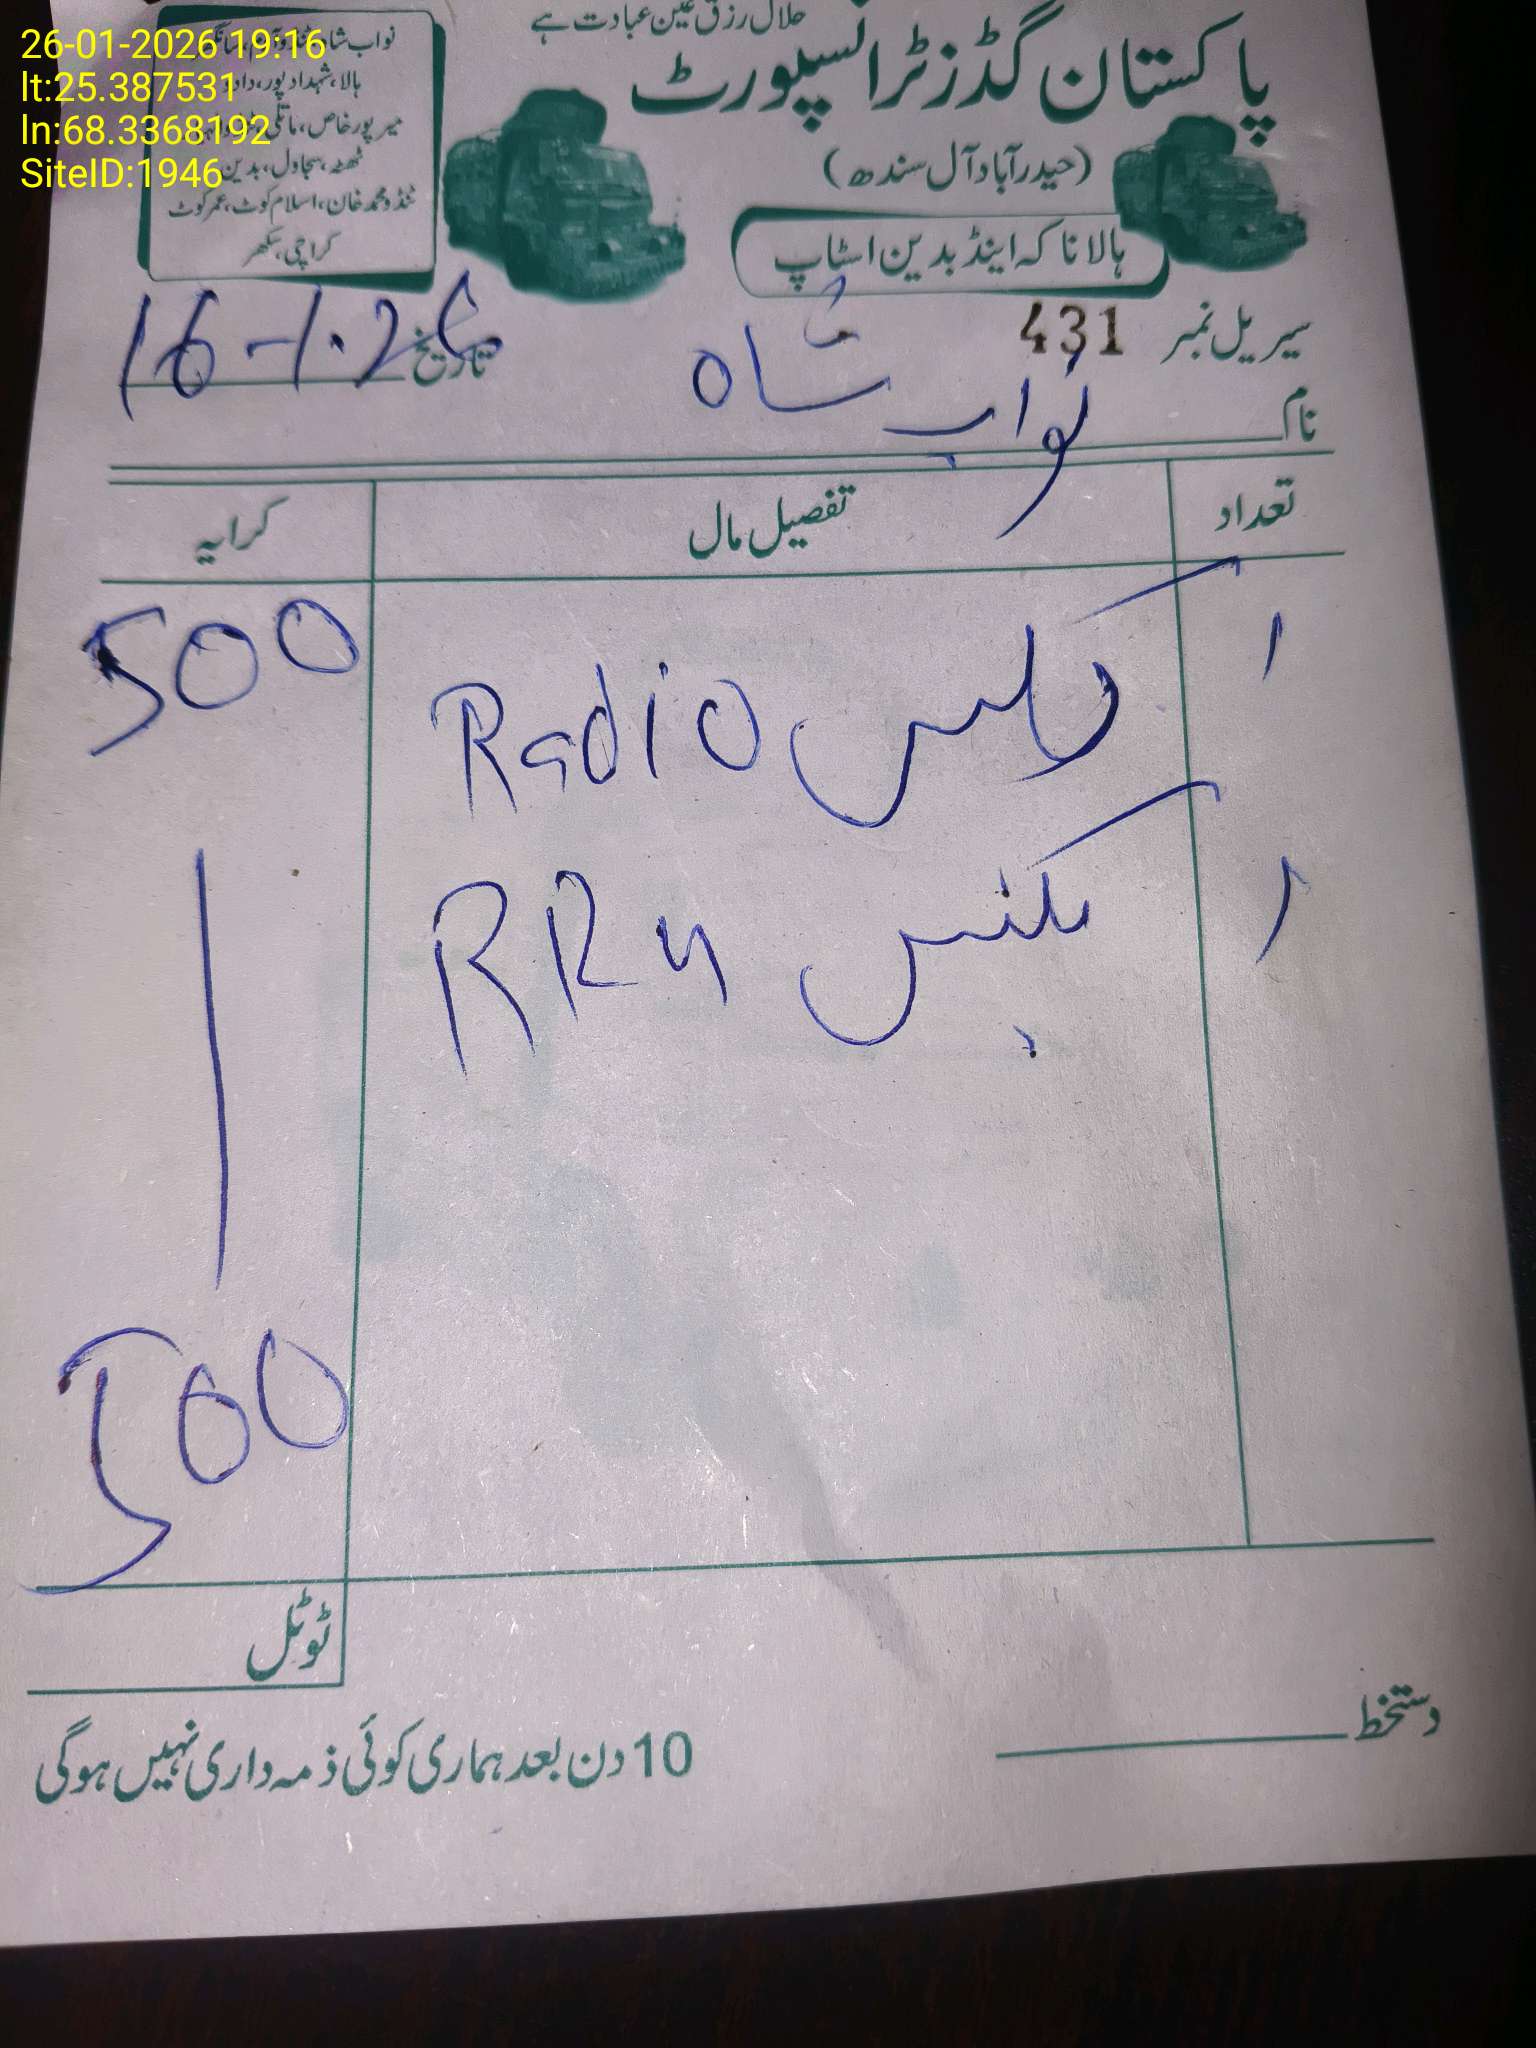 26-01-2026 19:16
lt:25.387531
ln:68.3368192
SiteID:1946
حلال رزق عین عبادت ہے
پاکستان گڈز ٹرانسپورٹ
(حیدرآباد آل سندھ)
ہالا ناکہ اینڈ بدین اسٹاپ
نواب شاہ، ٹنڈوآدم،
ہالا، شہدادپور، دادو
میرپورخاص، ماتلی،
ٹھٹھہ، سجاول، بدین
ٹنڈو محمد خان، اسلام کوٹ، عمرکوٹ
کراچی، سکھر
سیریل نمبر 431
تاریخ 16-1-26
نام نواب شاہ
تعداد تفصیل مال کرایہ
1 Radio 500
1 بکس RRU
500
ٹوٹل
دستخط
10 دن بعد ہماری کوئی ذمہ داری نہیں ہوگی